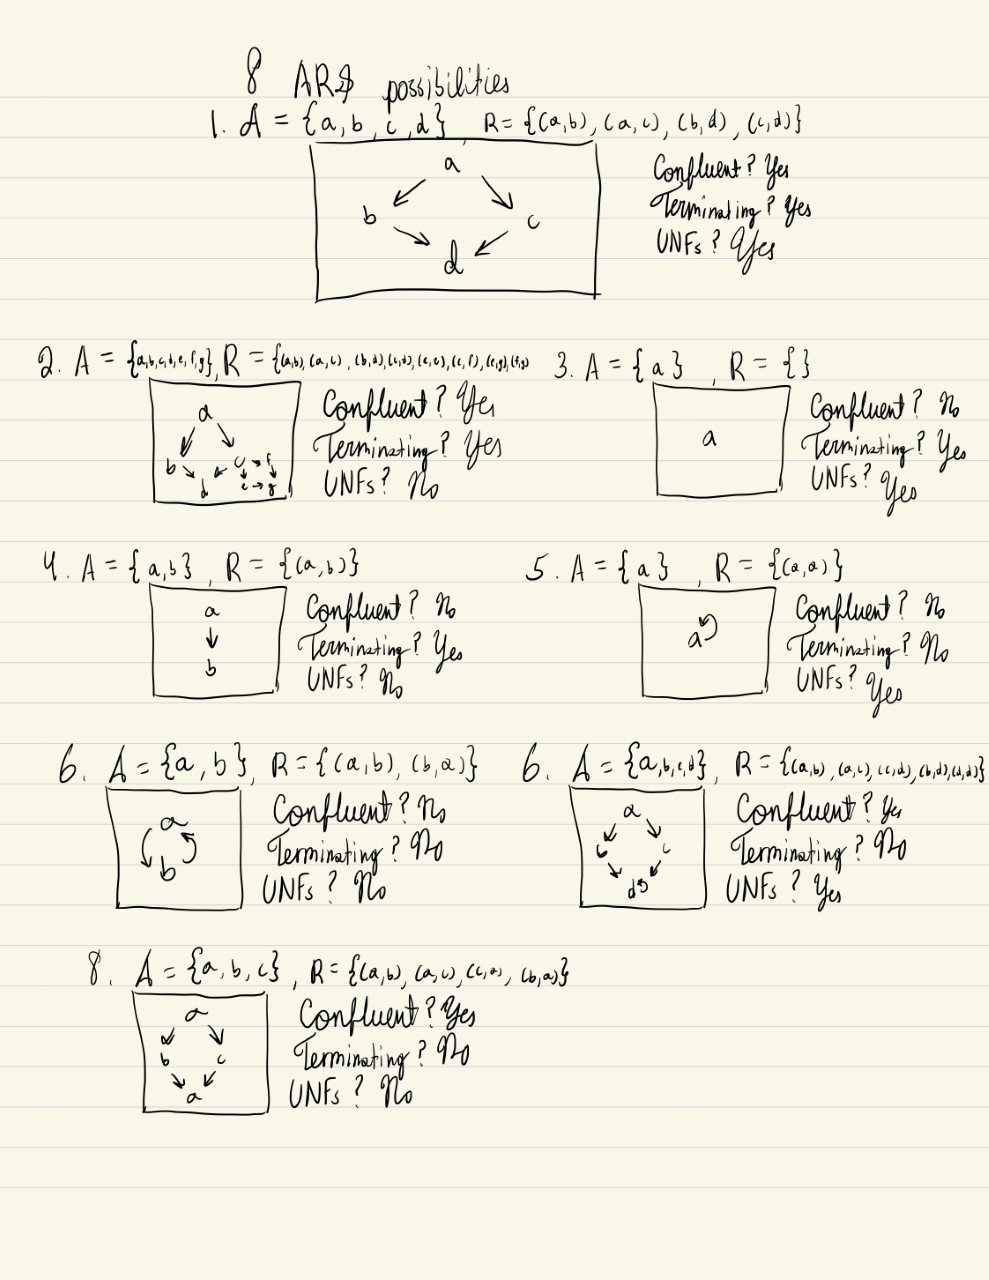 8 ARS possibilities
1. A = {a, b, c, d} R = {(a,b), (a,c), (b,d), (c,d)}
a
b c
d
Confluent? Yes
Terminating? Yes
UNFs? Yes
2. A = {a,b,c,d,e,f,g}, R = {(a,b), (a,c), (b,d), (c,d), (c,e), (c,f), (e,g), (f,g)}
a
b c f
d e g
Confluent? Yes
Terminating? Yes
UNFs? No
3. A = {a}, R = {}
a
Confluent? No
Terminating? Yes
UNFs? Yes
4. A = {a,b}, R = {(a,b)}
a
b
Confluent? No
Terminating? Yes
UNFs? No
5. A = {a}, R = {(a,a)}
a
Confluent? No
Terminating? No
UNFs? Yes
6. A = {a, b}, R = {(a,b), (b,a)}
a
b
Confluent? No
Terminating? No
UNFs? No
6. A = {a,b,c,d}, R = {(a,b), (a,c), (c,d), (b,d), (d,d)}
a
b c
d
Confluent? Yes
Terminating? No
UNFs? Yes
8. A = {a, b, c}, R = {(a,b), (a,c), (c,a), (b,a)}
a
b c
a
Confluent? Yes
Terminating? No
UNFs? No